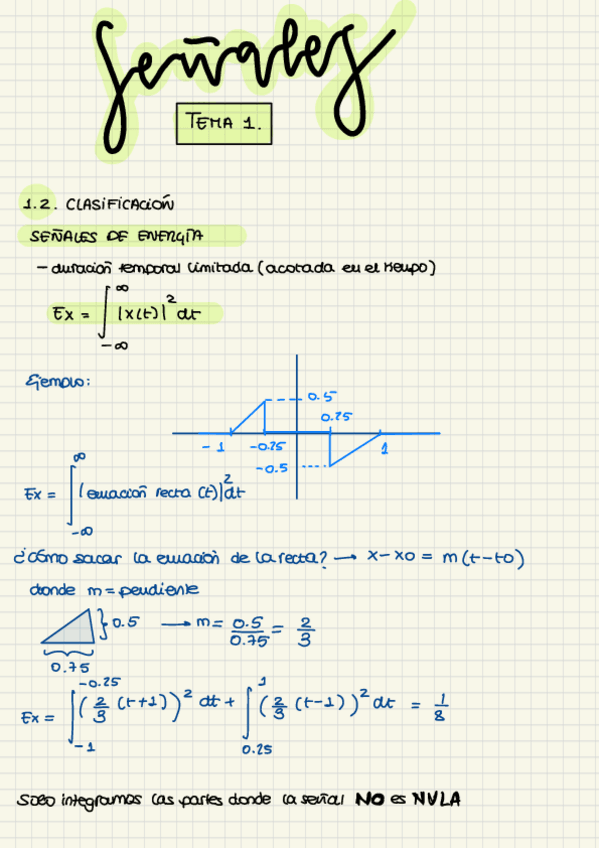 Señales
TEMA 1.
1.2. CLASIFICACIÓN
SEÑALES DE ENERGÍA
- duración temporal limitada (acotada en el tiempo)
Ex = ∫_{-∞}^{∞} |x(t)|² dt
Ejemplo:
0.5
0.25
-1 -0.25 1
-0.5
Ex = ∫_{-∞}^{∞} |ecuación recta (t)|² dt
¿Cómo sacar la ecuación de la recta? → x-x0 = m(t-t0)
donde m = pendiente
0.5 → m = 0.5/0.75 = 2/3
0.75
Ex = ∫_{-1}^{-0.25} (2/3 (t+1))² dt + ∫_{0.25}^{1} (2/3 (t-1))² dt = 1/8
Solo integramos las partes donde la señal NO es NULA